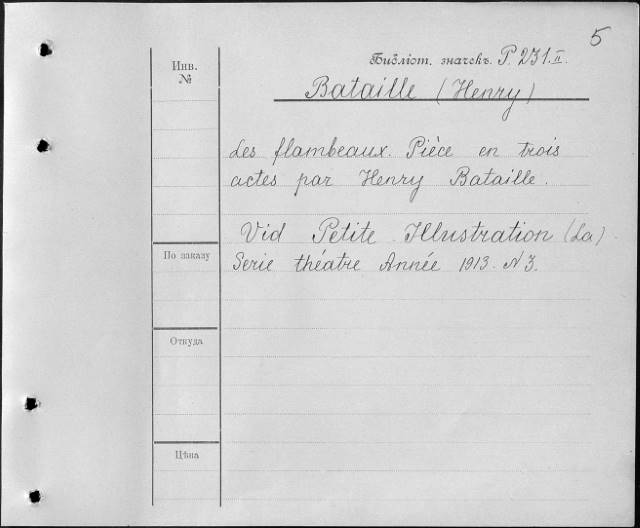 5
Библіот. значекъ P. 231.II.
Инв.
№
Bataille (Henry)
Les flambeaux. Pièce en trois
actes par Henry Bataille.
Vid Petite Illustration (La)
Serie théatre Année 1913. N 3.
По заказу
Откуда
Цѣна